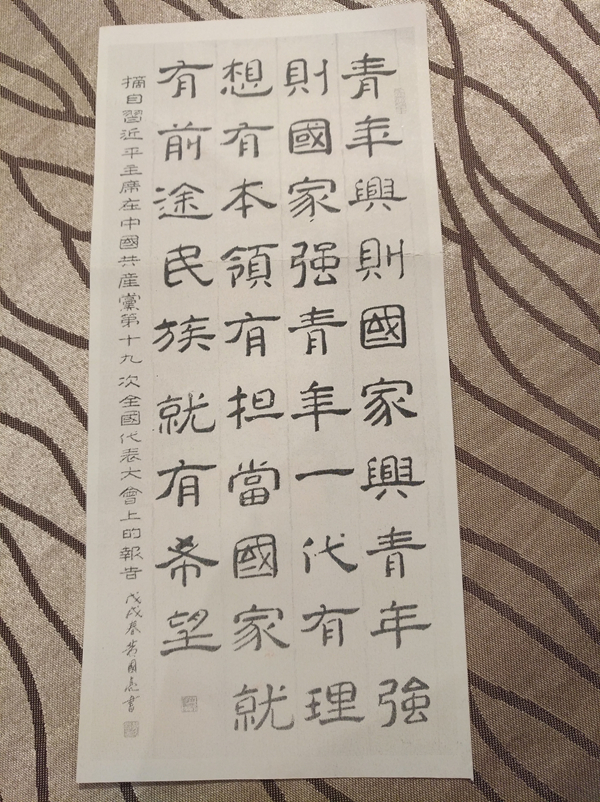 青年興則國家興青年強
則國家强青年一代有理
想有本領有担當國家就
有前途民族就有希望
摘自習近平主席在中國共産黨第十九次全國代表大會上的報告 戊戌春 書